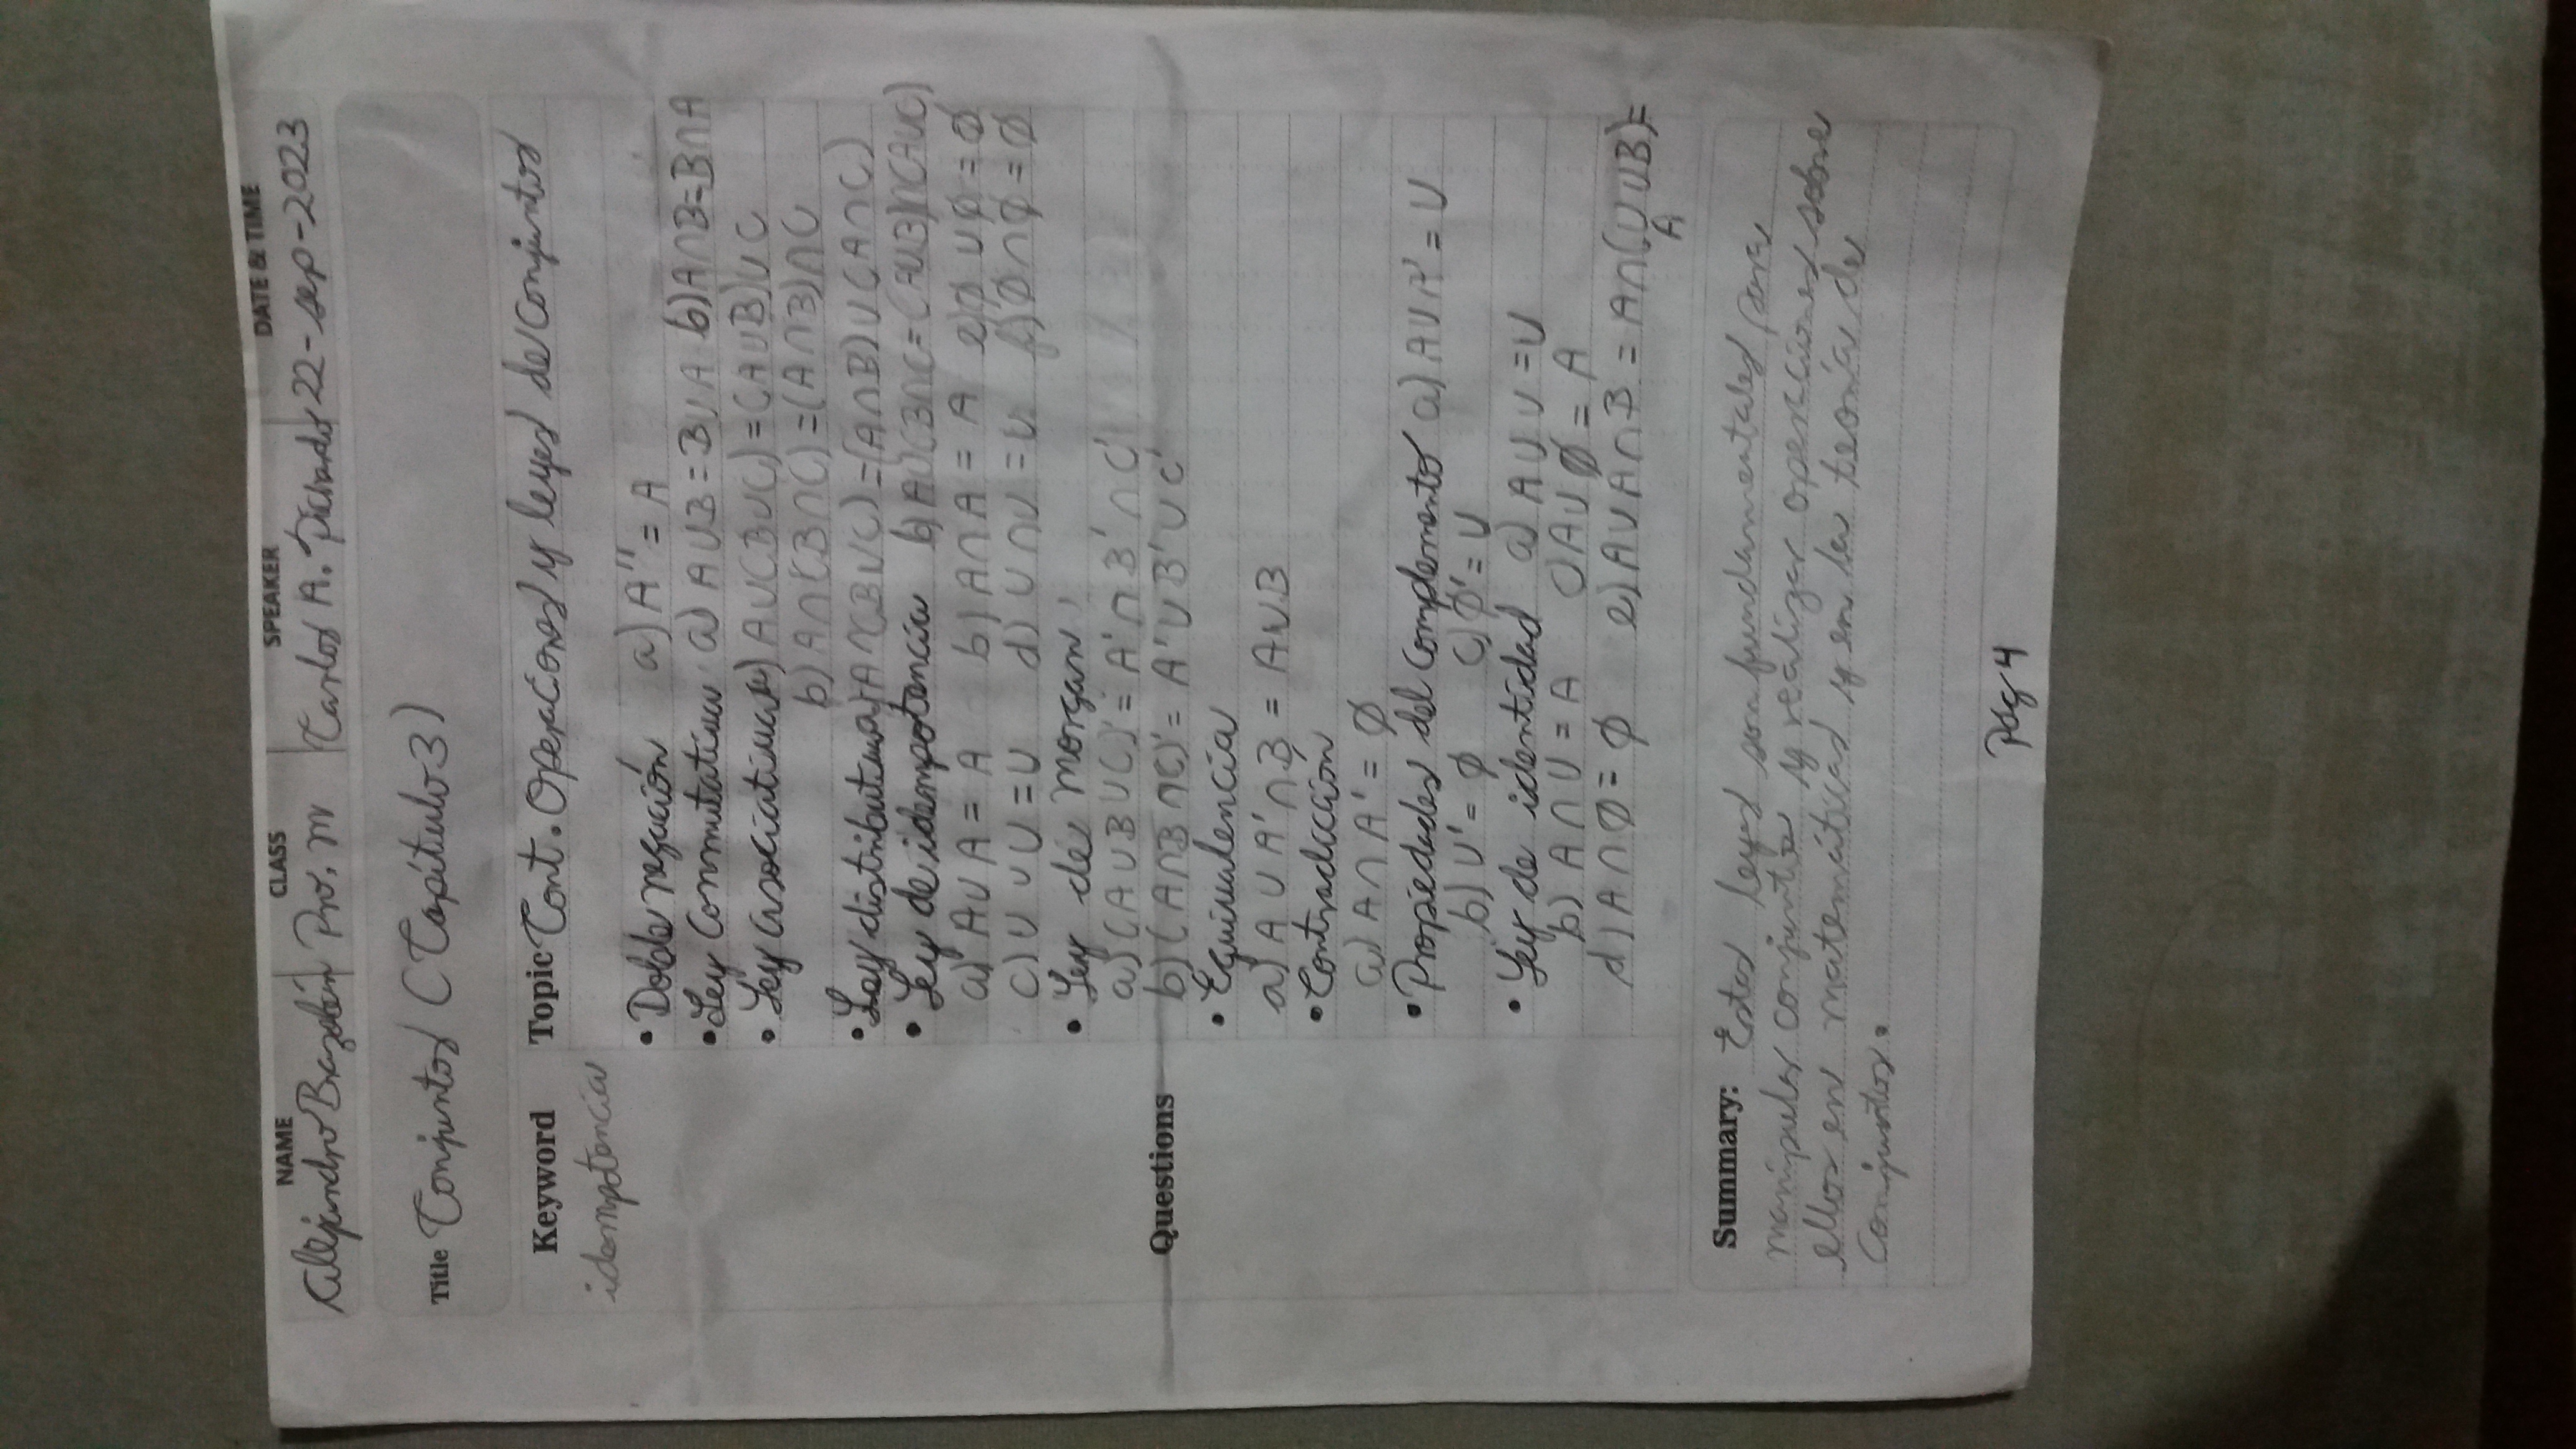 NAME CLASS SPEAKER DATE & TIME
Alejandro Brazobán Pro. M Carlos A. Pichardo 22-sep-2023
Title Conjuntos (Capítulo 3)
Keyword Topic Cont. Operaciones y leyes de conjuntos
idempotencia
• Doble negación a) A'' = A
• Ley Conmutativa a) A∪B = B∪A b) A∩B=B∩A
• Ley asociativa a) A∪(B∪C) = (A∪B)∪C
b) A∩(B∩C) = (A∩B)∩C
• Ley distributiva a) A∩(B∪C) = (A∩B)∪(A∩C)
• Ley de idempotencia b) A∪(B∩C = (A∪B)∩(A∪C)
a) A∪A = A b) A∩A = A e) ∅∪∅ = ∅
c) U∪U = U d) U∩U = U f) ∅∩∅ = ∅
• Ley de Morgan
a) (A∪B∪C)' = A'∩B'∩C'
Questions b) (A∩B∩C)' = A'∪B'∪C'
• Equivalencia
a) A∪A'∩B = A∪B
• Contradicción
a) A∩A' = ∅
• Propiedades del Complemento a) A∪A' = U
b) U' = ∅ c) ∅' = U
• Ley de identidad a) A∪U = U
b) A∩U = A c) A∪∅ = A
d) A∩∅ = ∅ e) A∪A∩B = A∩(U∪B) =
A
Summary: Estas leyes son fundamentales para
manipular conjuntos y realizar operaciones sobre
ellos en matemáticas y en la teoría de
conjuntos.
Pág 4